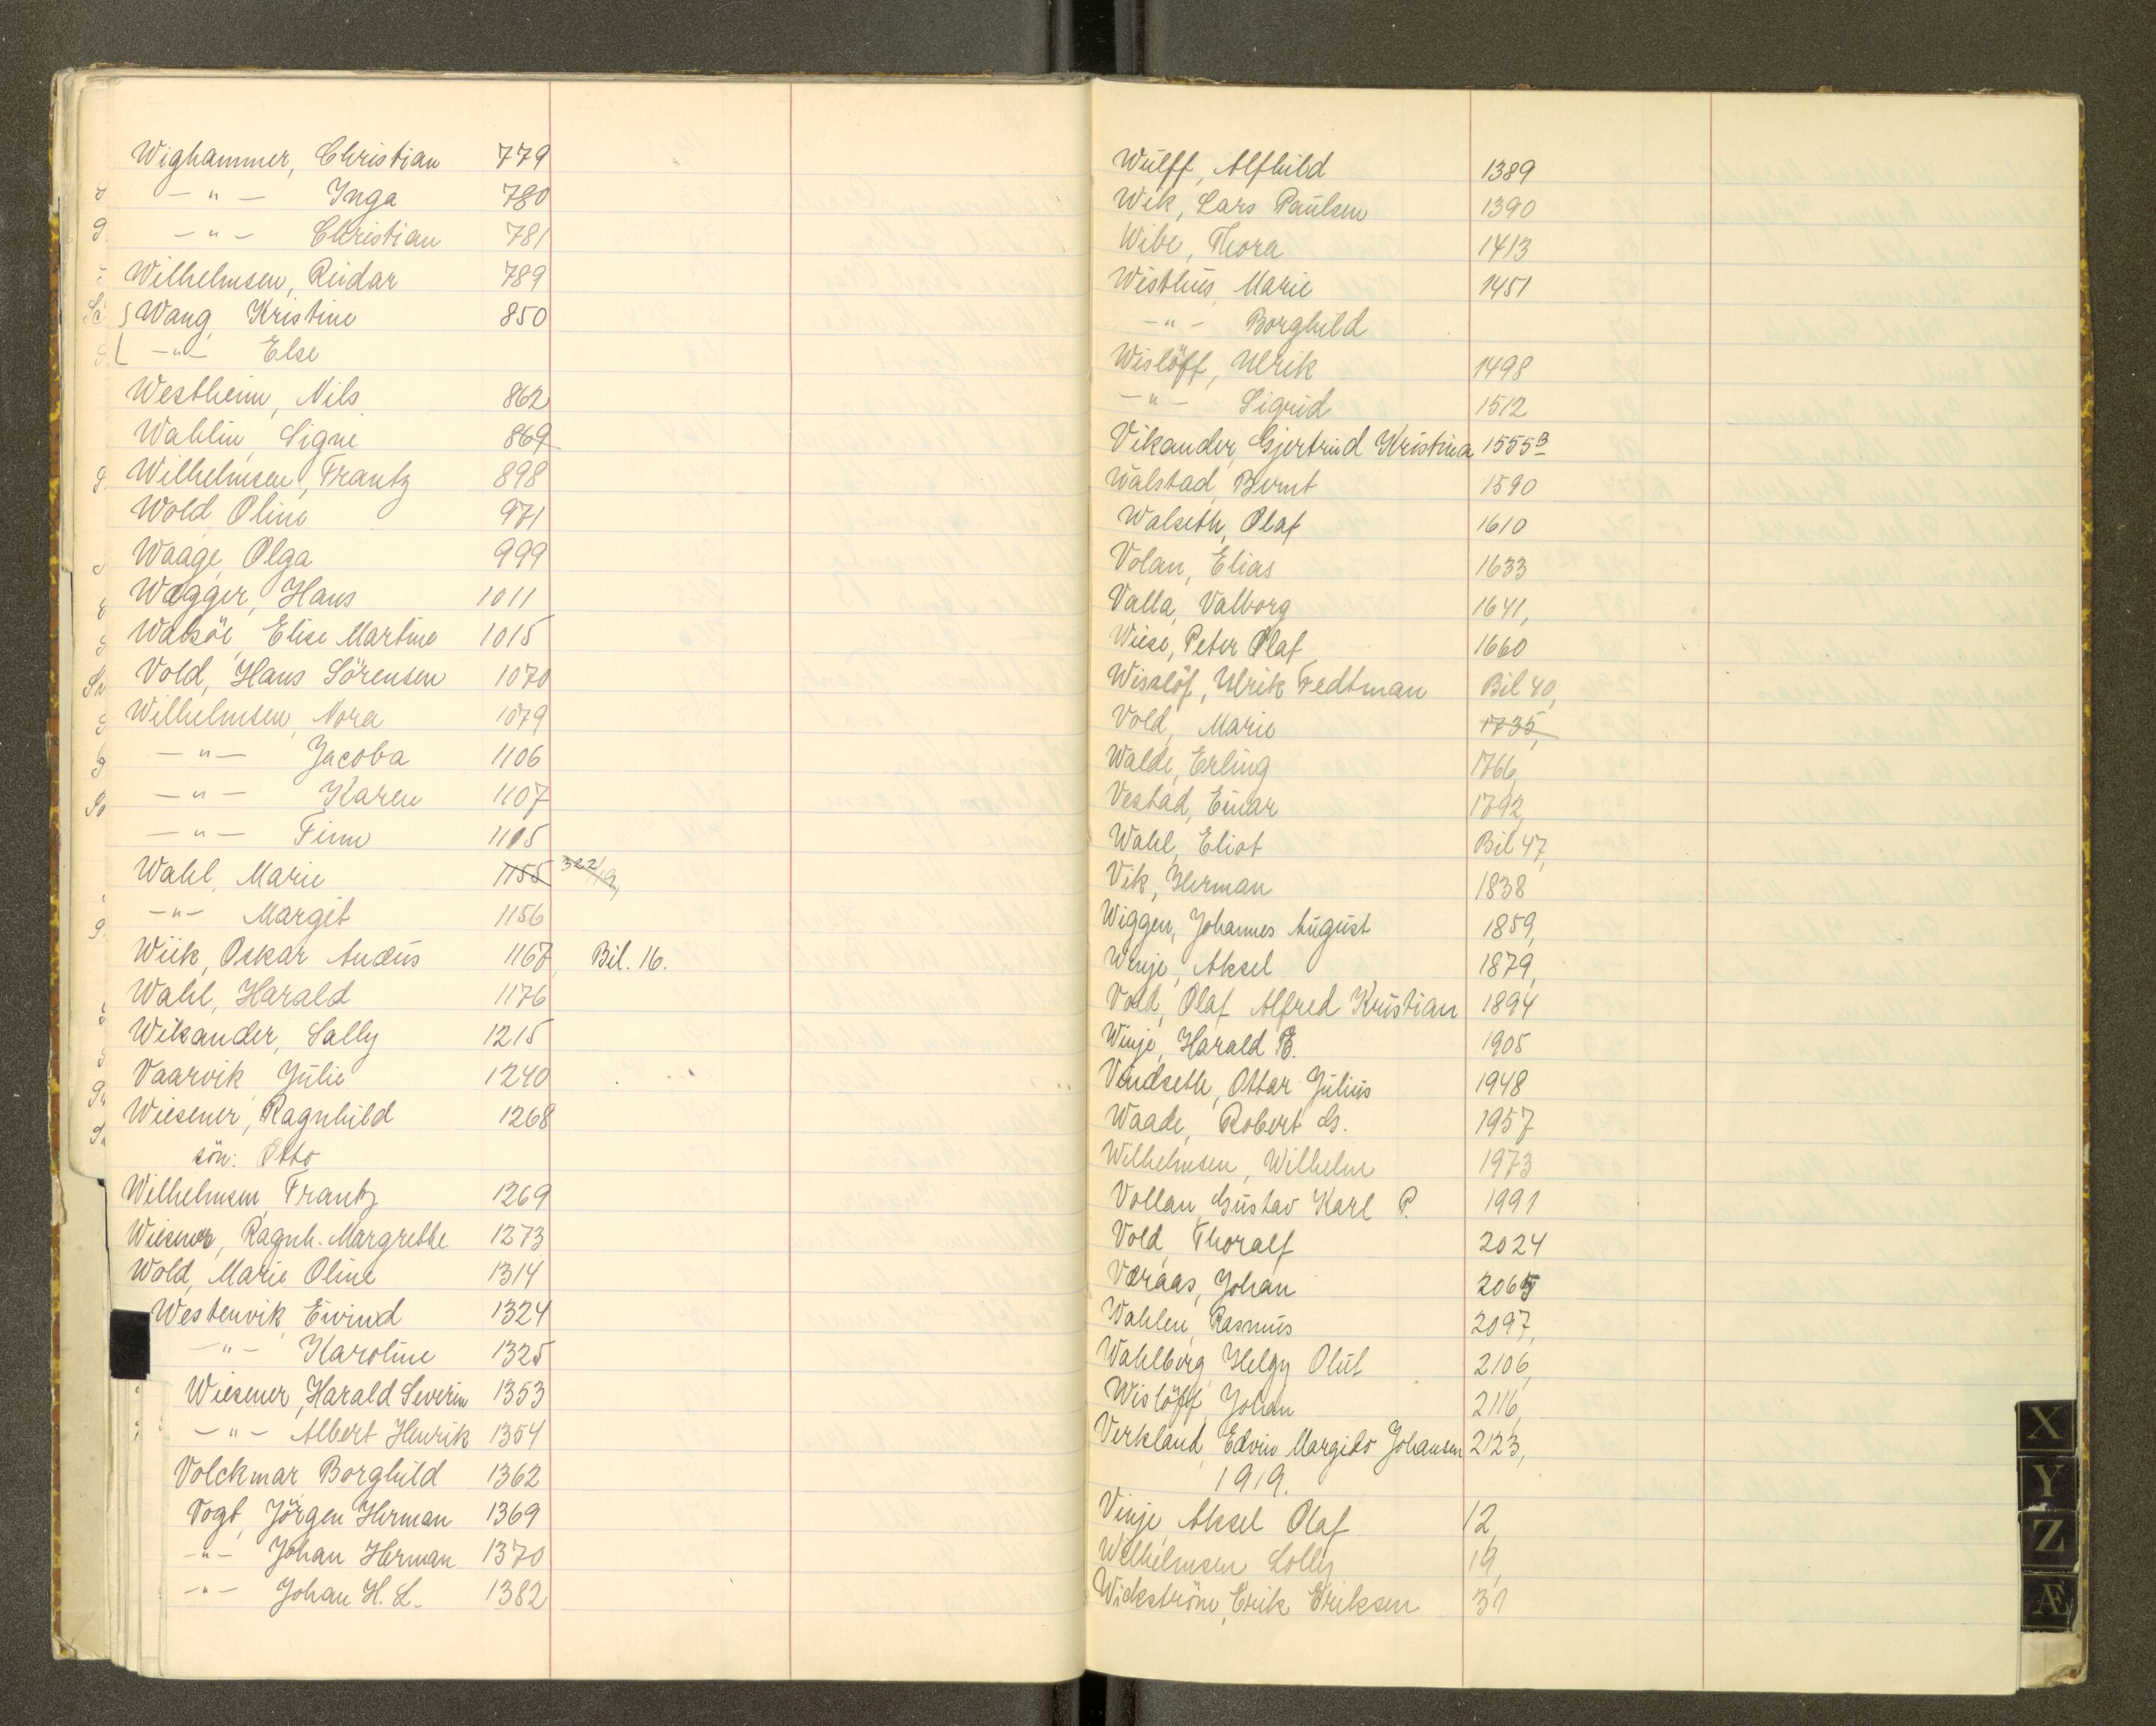 Wighammer, Christian 779
—"— Inga 780
—"— Christian 781
Wilhelmsen, Reidar 789
Wang, Kristine 850
—"— Else
Westheim, Nils 862
Wahlin, Signe 869
Wilhelmsen, Frantz 898
Wold, Oline 971
Waage, Olga 999
Wægger, Hans 1011
Walsöe, Elise Martine 1015
Vold, Hans Sörensen 1070
Wilhelmsen, Nora 1079
—"— Jacoba 1106
—"— Karen 1107
—"— Finn 1105
Wahl, Marie 1155 322/19,
—"— Margit 1156
Wiik, Oskar Andeus 1167, Bil. 16.
Wahl, Harald 1176
Wikander, Sally 1215
Vaarvik, Julie 1240
Wiesener, Ragnhild 1268
sön: Otto
Wilhelmsen, Frantz 1269
Wiesener, Ragnh. Margrethe 1273
Wold, Marie Oline 1314
Westenvik, Eivind 1324
—"— Karoline 1325
Wiesener, Harald Severin 1353
—"— Albert Henrik 1354
Volckmar Borghild 1362
Vogt, Jörgen Herman 1369
—"— Johan Herman 1370
—"— Johan H. L. 1382
Wulff, Alfhild 1389
Wik, Lars Paulsen 1390
Wibe, Thora 1413
Wisthus, Marie 1451
—"— Borghild
Wislöff, Ulrik 1498
—"— Sigrid 1512
Vikander, Gjertrud Kristina 1555B
Walstad, Bernt 1590
Walseth, Olaf 1610
Volan, Elias 1633
Valla, Valborg 1641,
Wiese, Peter Olaf 1660
Wisslöf, Ulrik Fedtman Bil 40,
Vold, Marie 1735,
Walde, Erling 1766,
Vestad, Einar 1792,
Wahl, Eliot Bil 47,
Vik, Herman 1838
Wiggen, Johannes August 1859,
Winje, Aksel 1879,
Vold, Olaf Alfred Kristian 1894
Winje, Harald B. 1905
Vindseth, Ottar Julius 1948
Waade, Robert G. 1957
Wilhelmsen, Wilhelm 1973
Vollan, Gustav Karl P. 1991
Vold, Thoralf 2024
Væraas, Johan 2065
Wahlen, Rasmus 2097,
Wahlberg, Helgy Olut 2106,
Wislöff, Johan 2116,
Verkland, Edvin Margido Johansen 2123,
1919.
Vinje, Aksel Olaf 12,
Wilhelmsen Lolly 19,
Wickström, Erik Eriksen 31
X
Y
Z
Æ